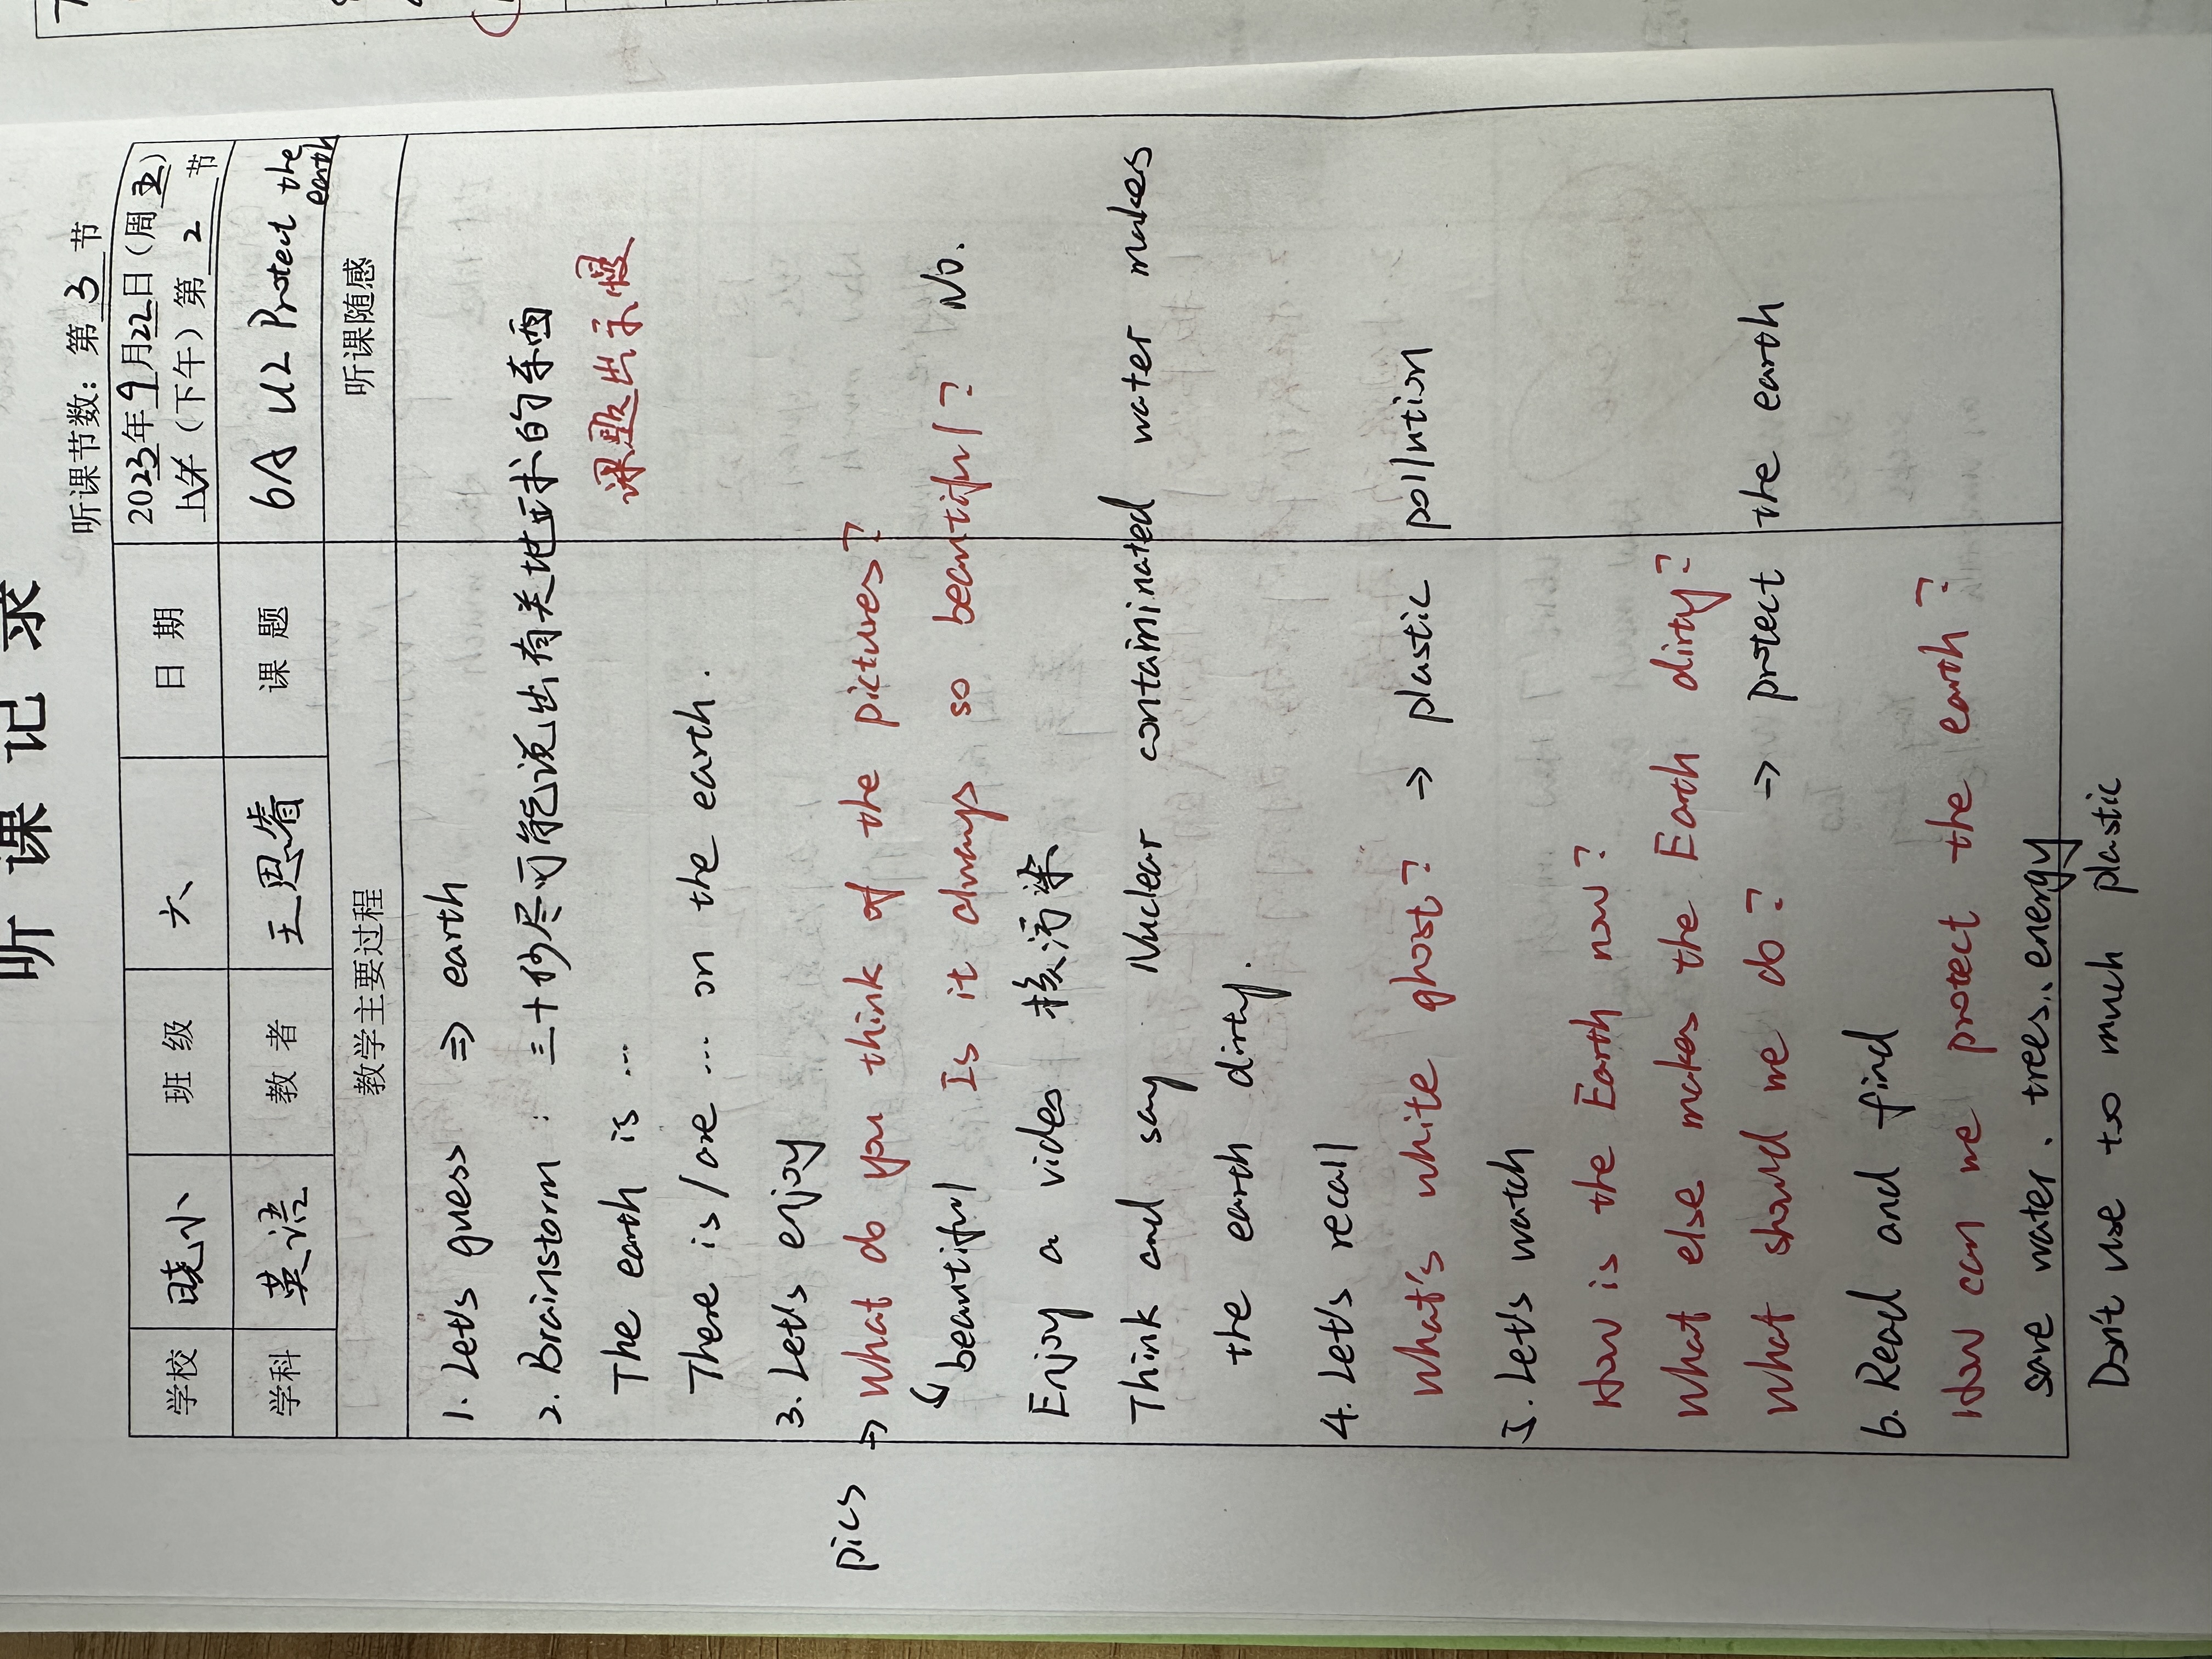 听课记录
听课节数：第 3 节
学校 晓小 班级 六 日期 2023年9月22日（周五）
上午（下午）第 2 节
学科 英语 教者 王思睿 课题 6A U2 Protect the
earth
教学主要过程 听课随感
1. Let's guess ⇒ earth
2. Brainstorm : 三十秒尽可能说出有关地球的东西
The earth is ...
课题出示慢
There is / are ... on the earth.
3. Let's enjoy
pics → What do you think of the pictures?
beautiful Is it always so beautiful? No.
Enjoy a video 核污染
Think and say Nuclear contaminated water makes
the earth dirty.
4. Let's recall
What's white ghost? → plastic pollution
5. Let's watch
How is the Earth now?
What else makes the Earth dirty?
What should we do? → protect the earth
6. Read and find
How can we protect the earth?
save water、trees、energy
Don't use too much plastic